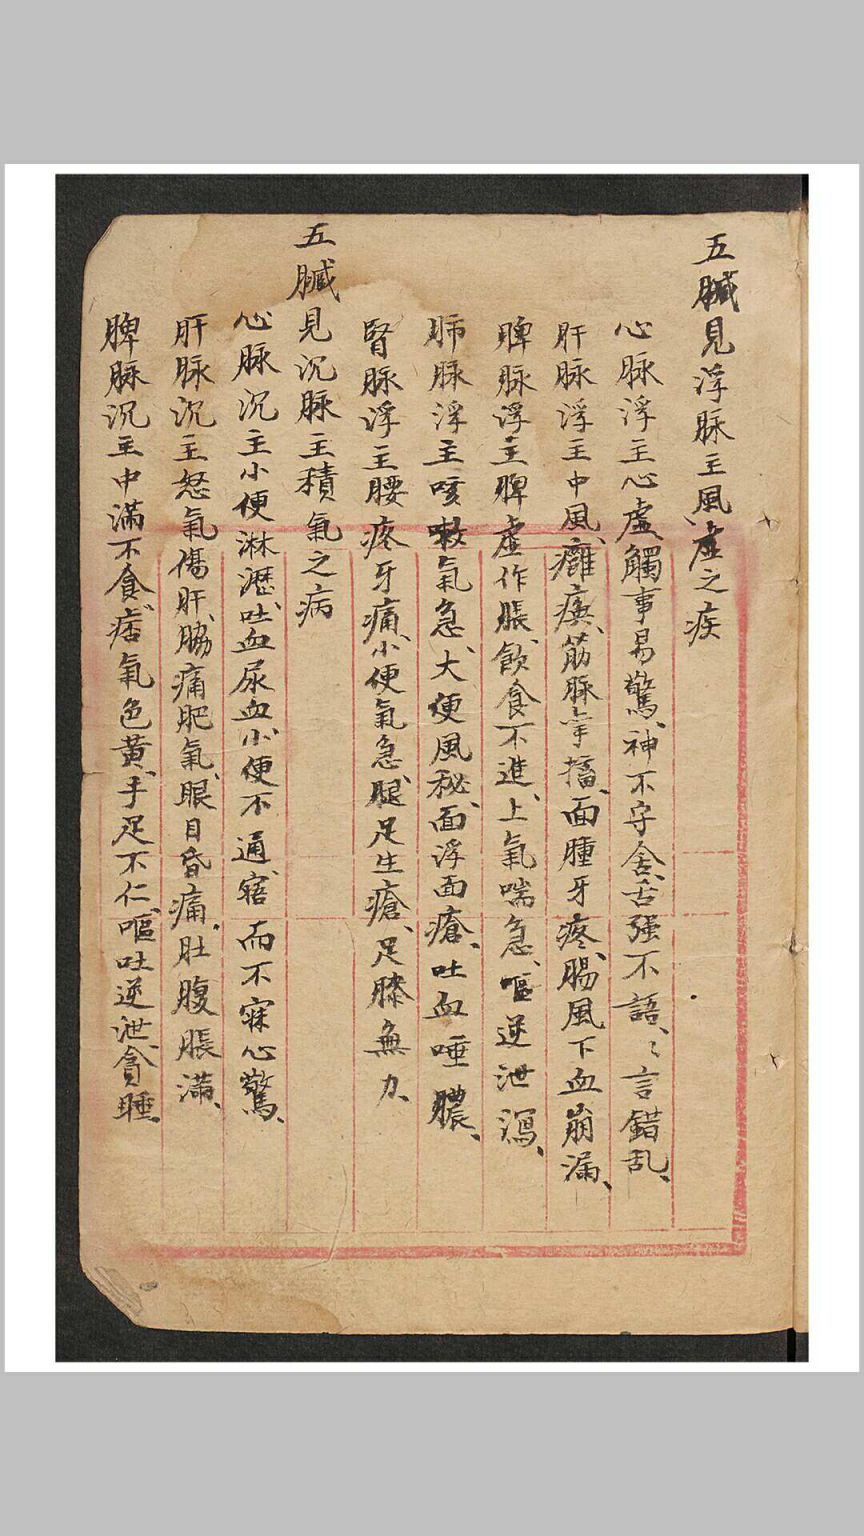 五臟見浮脉主風、虛之疾
心脉浮主心虛、觸事易驚、神不守舍、舌強不語、〻言錯乱、
肝脉浮主中風、癱瘓、筋脉牽搐、面腫牙疼、腸風下血崩漏、
脾脉浮主脾虛作脹、飲食不進、上氣喘急、嘔逆泄瀉、
肺脉浮主咳嗽氣急、大便風秘、面浮面瘡、吐血唾膿、
腎脉浮主腰疼牙痛、小便氣急、腿足生瘡、足膝無力、
五臟見沉脉主積氣之病
心脉沉主小便淋瀝、吐血尿血、小便不通、寤而不寐心驚、
肝脉沉主怒氣傷肝、脇痛肥氣、眼目昏痛、肚腹脹滿、
脾脉沉主中滿不食、痞氣色黃、手足不仁、嘔吐逆泄、貪睡、